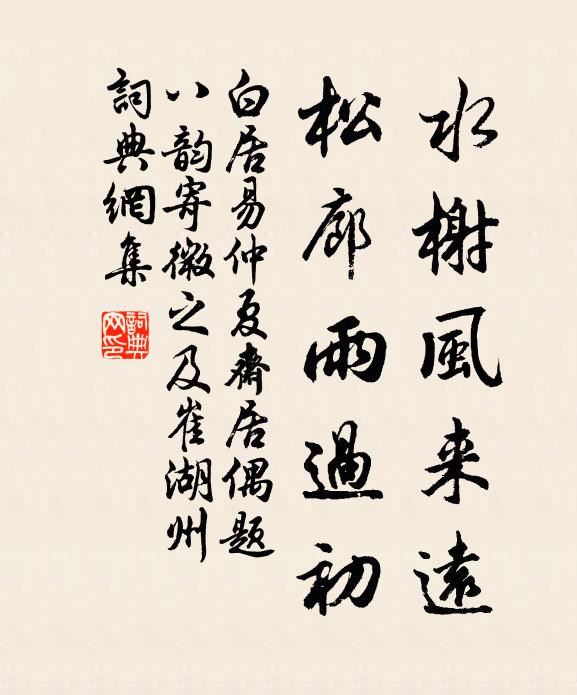 水榭風来遠
松廊雨過初
白居易仲夏齋居偶題
八韵寄微之及崔湖州
詞典網集
詞典网印